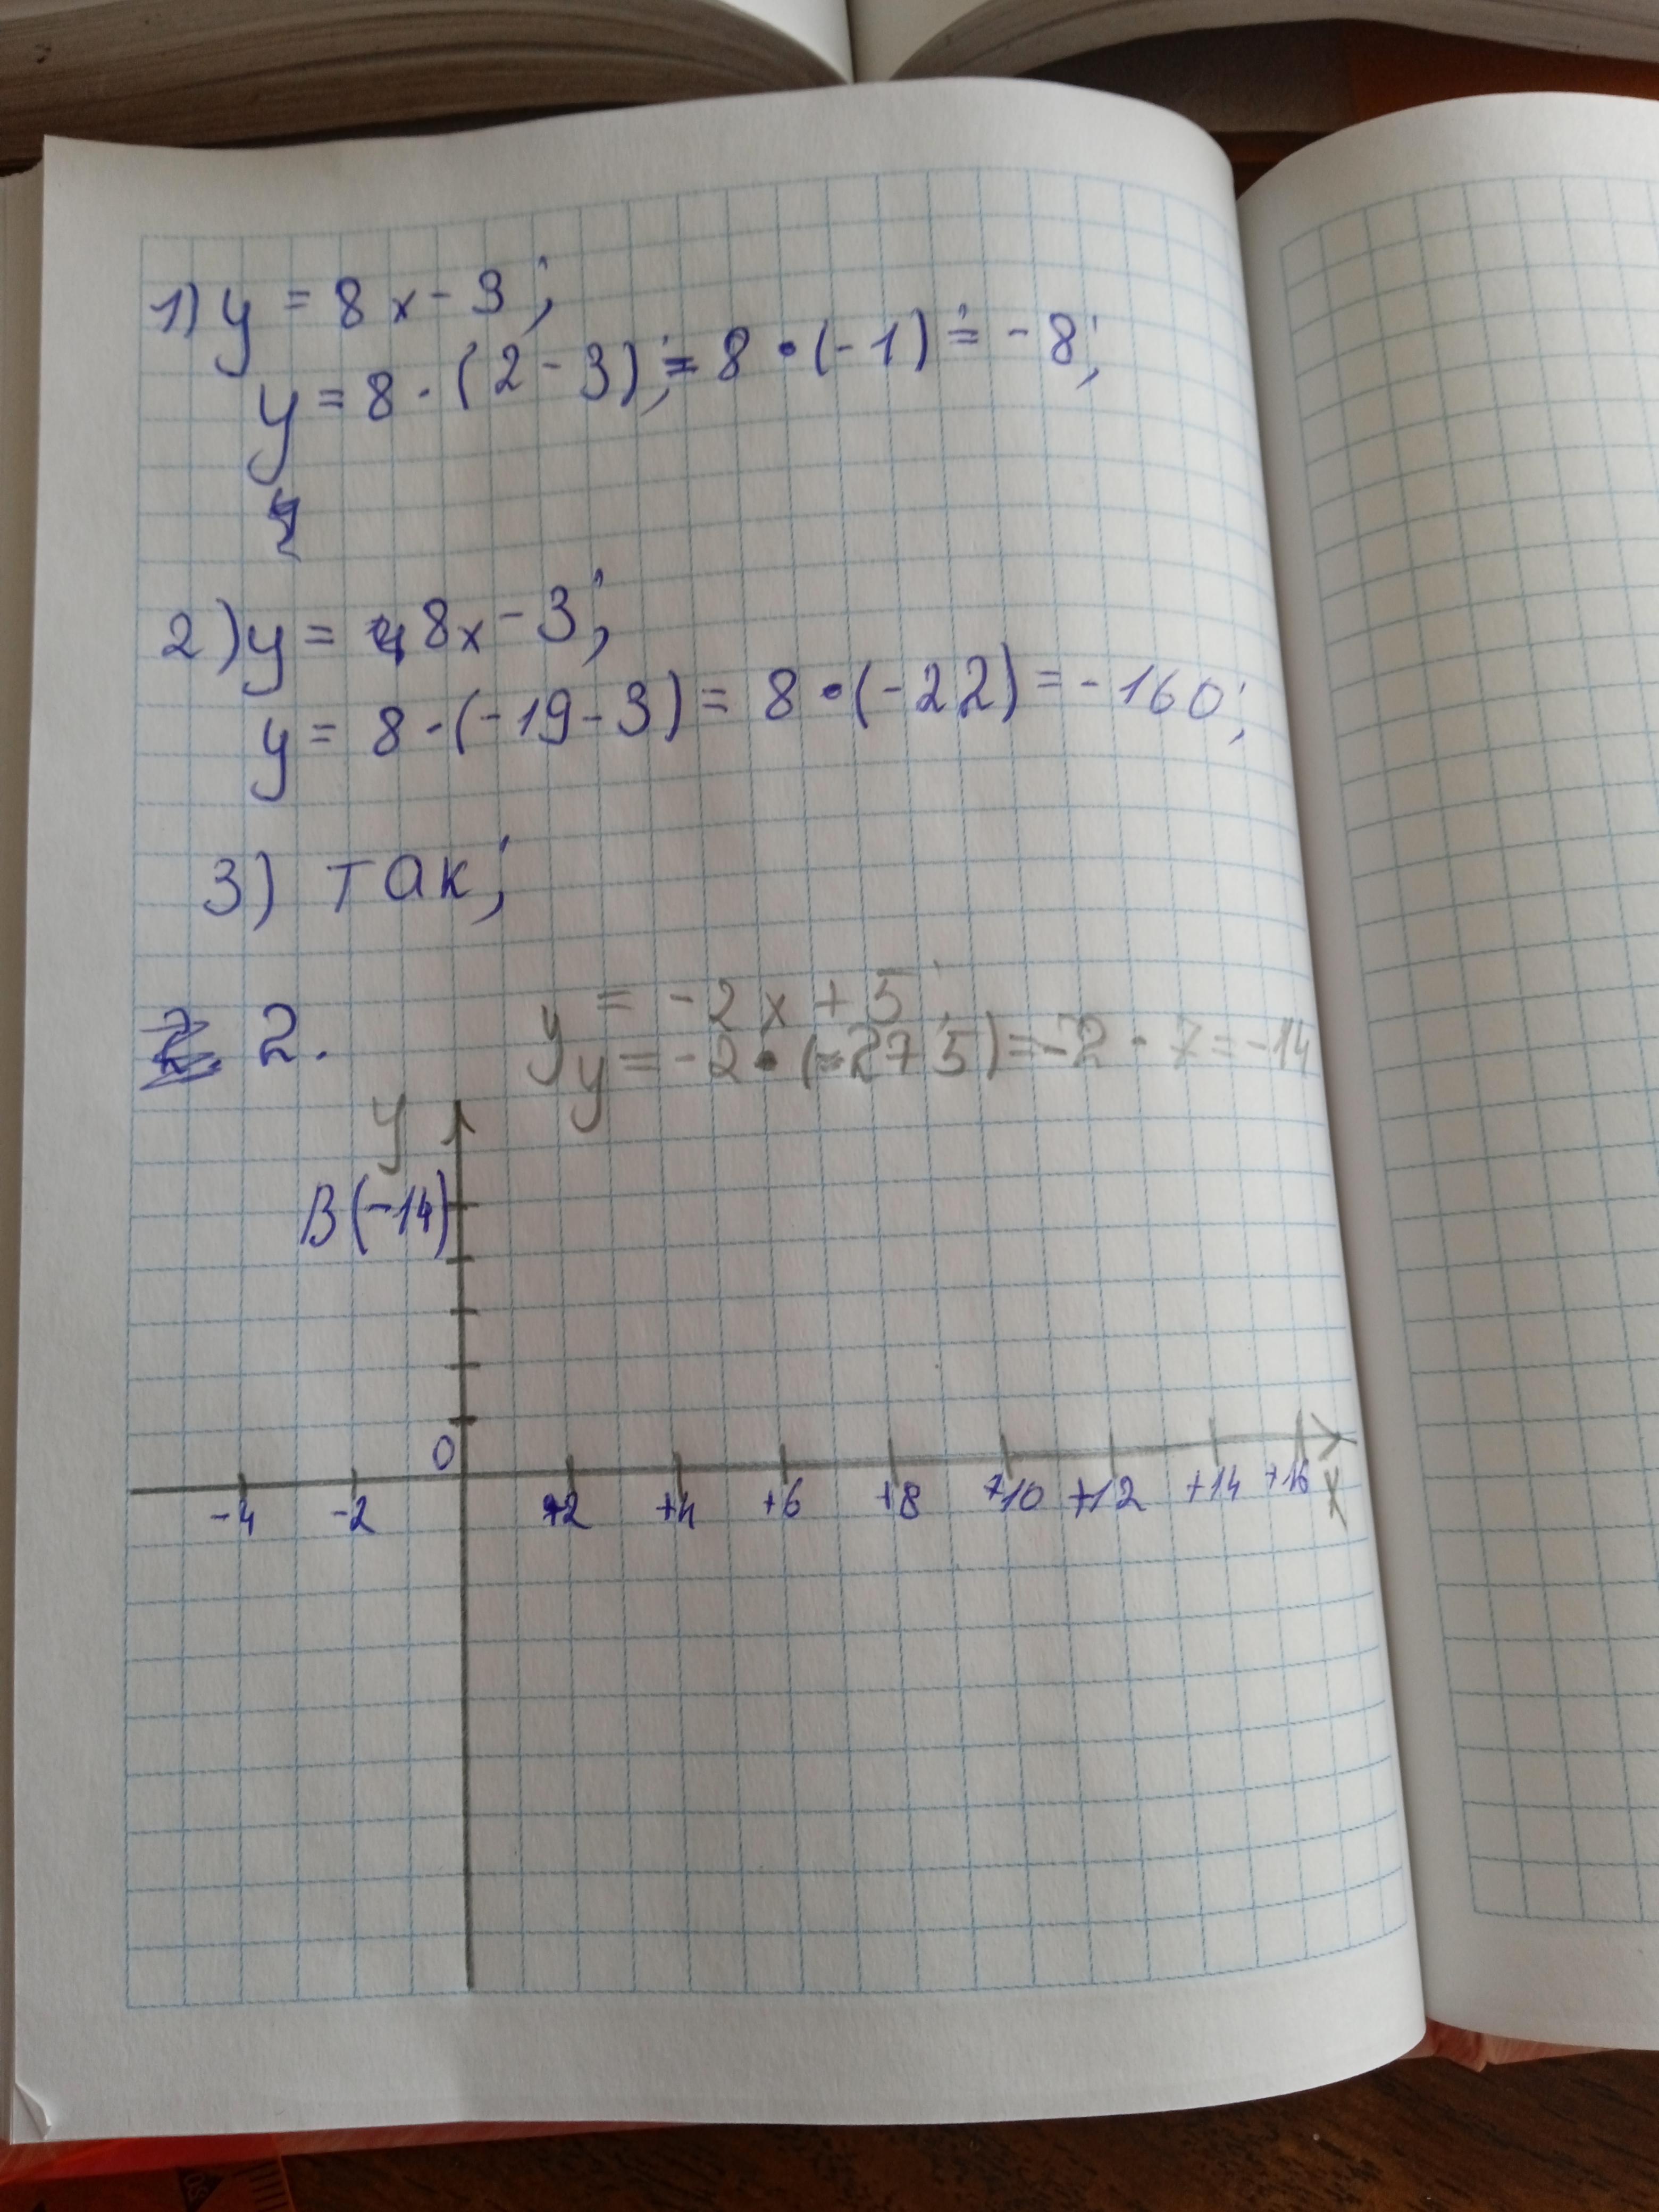 1) y = 8x - 3;
y = 8 · (2 - 3); = 8 · (-1) = -8;
2) y = 8x - 3;
y = 8 · (-19 - 3) = 8 · (-22) = -160;
3) так;
2.
y = -2x + 5;
y = -2 · (-27 5) = -2 · 7 = -14
y
B(-14)
0
-4 -2 +2 +4 +6 +8 +10 +12 +14 +16 x